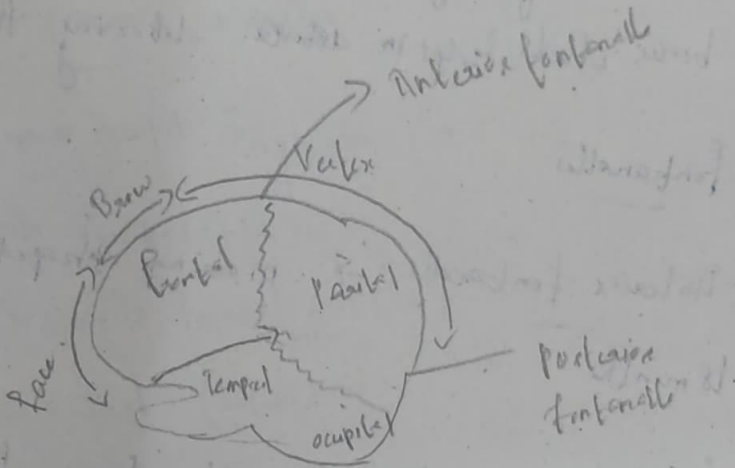 Anterior fontanelle
Vertex
Brow
frontal
Parital
face
Temporal
occipital
Posterior
fontanelle